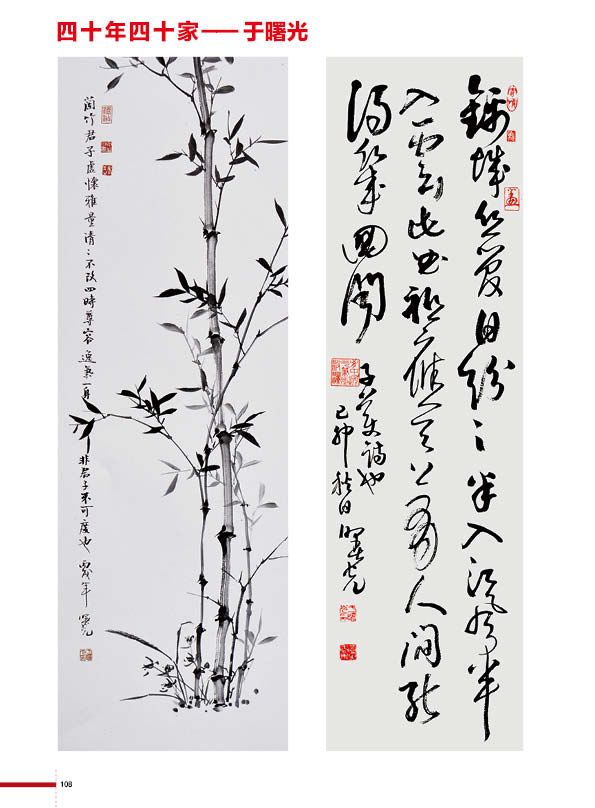 四十年四十家——于曙光
蘭竹君子虛懷雅量清〻不改四時尊容逸氣一身
非君子不可度也 年 曙光
錦城絲管日紛〻半入江風半
入雲此曲祇應天上有人間能
得幾回聞
子美詩也
己卯秋日曙光
108